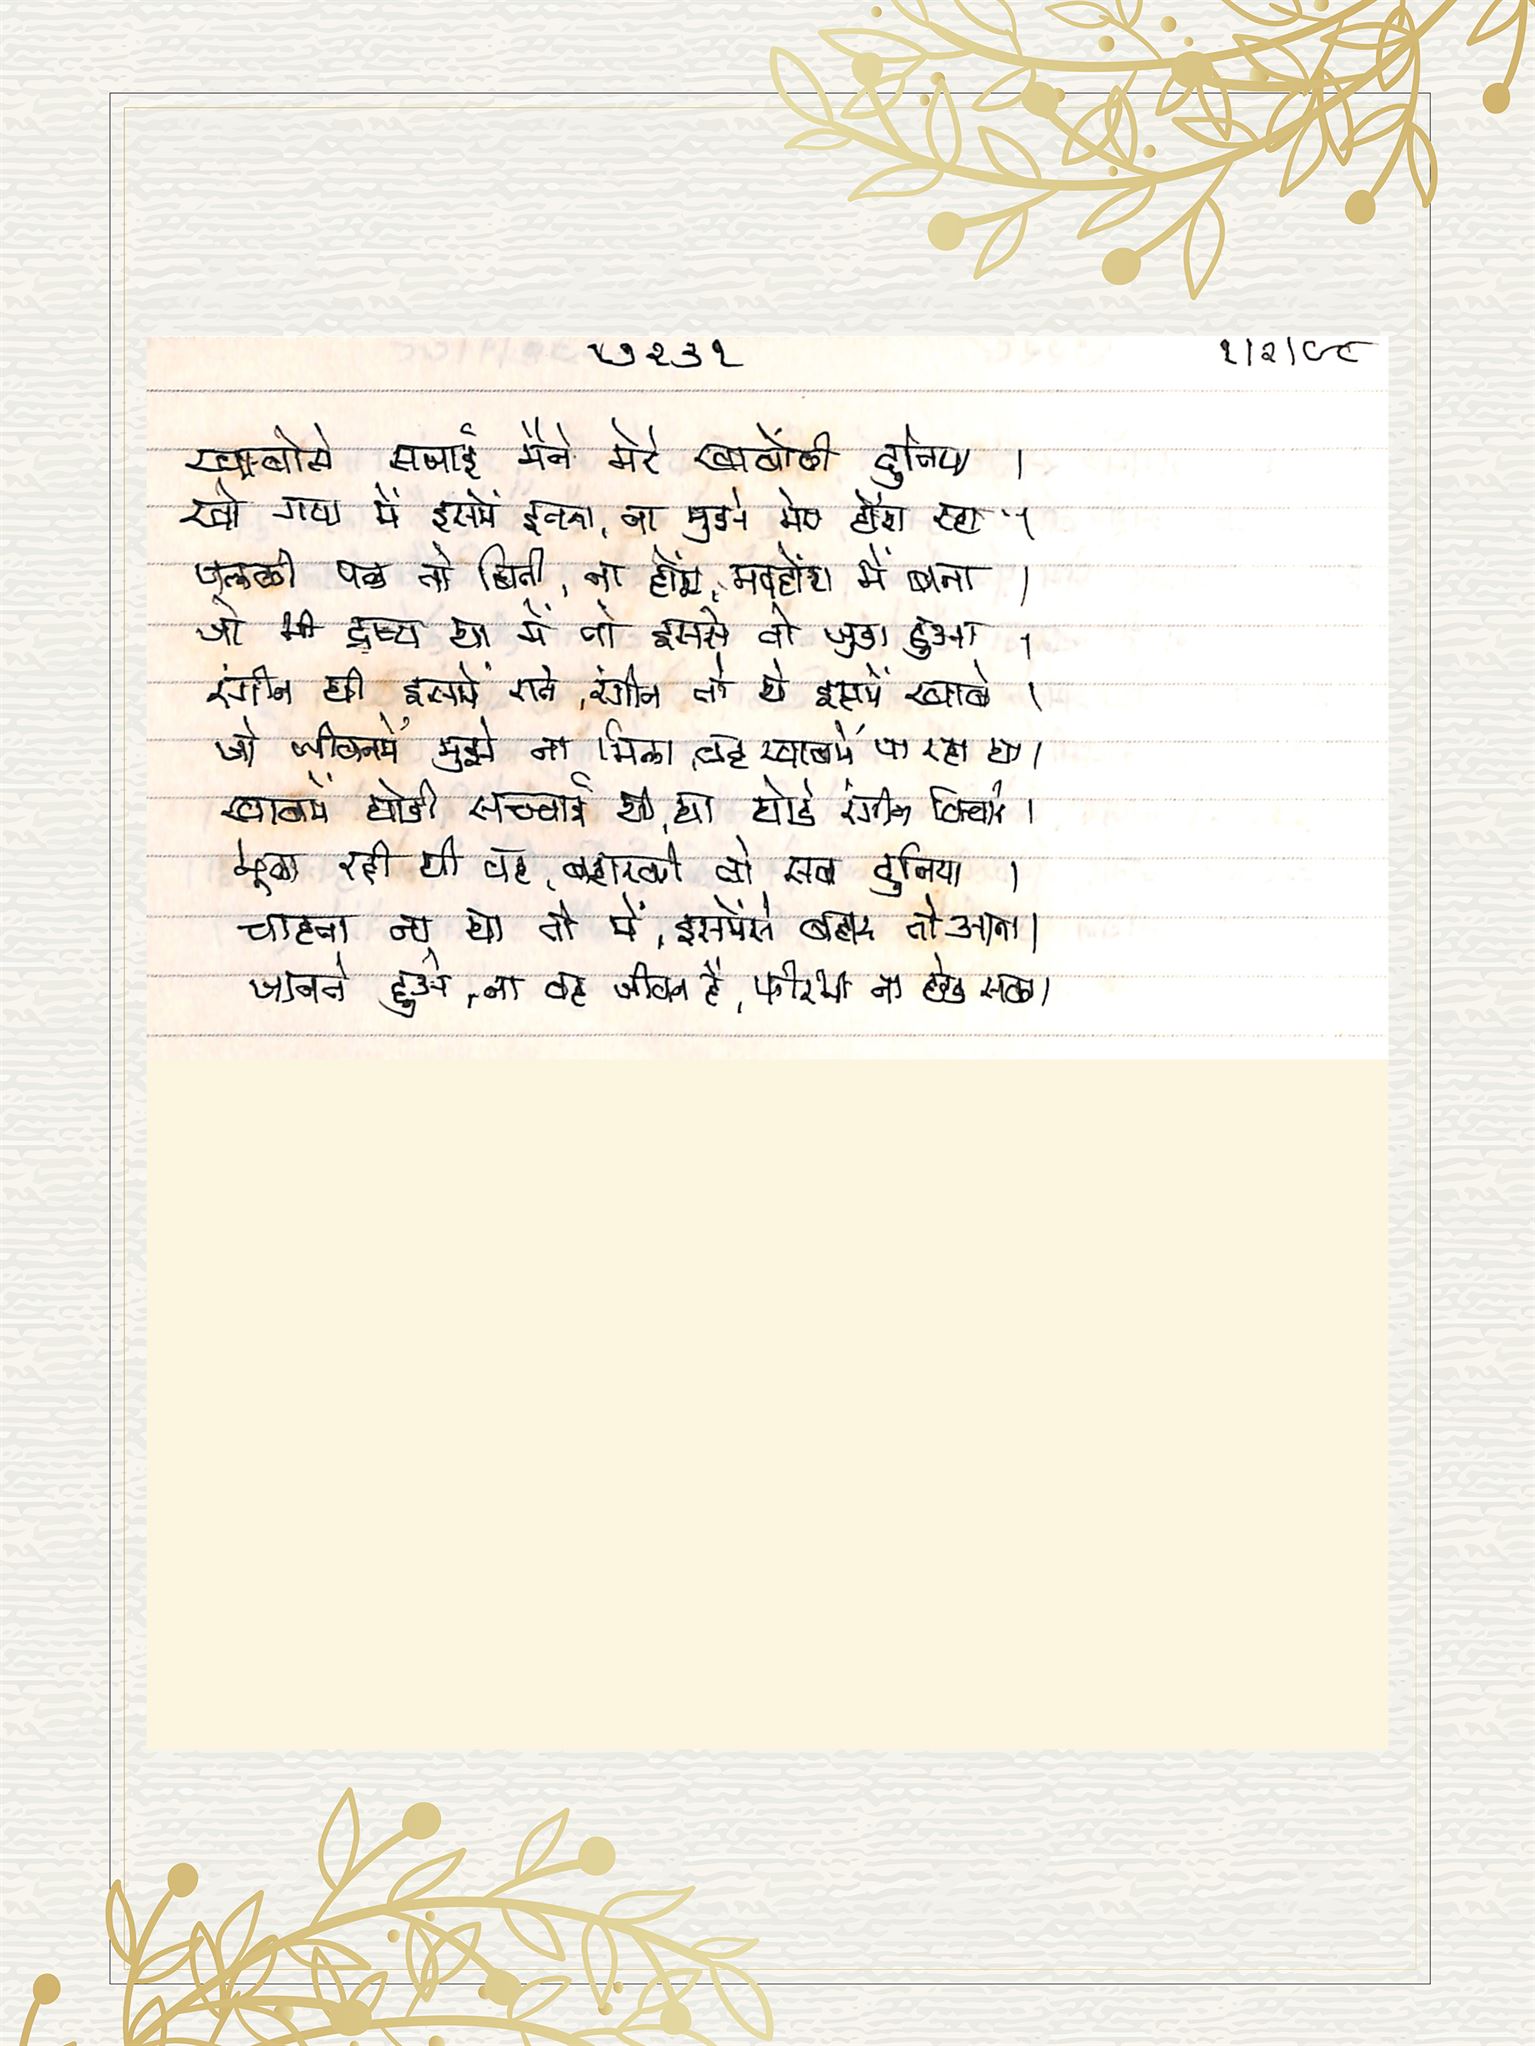 ५७२३१ १/२/९८
ख्वाबोसे सजाई मैने मेरे ख्वाबोंकी दुनिया ।
खो गया मैं इसमें इतना, ना मुझे मेरा होंश रहा ।
पलकी पल तो बिती, ना होंश, मदहोंश मैं बना ।
जो भी द्रष्य था में वो इससे वो जुडा हुआ ।
रंगीन थी इसमें रातें, रंगीन तो थे इसमें ख्वाबे ।
जो जीवनमें मुझे ना मिला, वह ख्वाबमें पा रहा था ।
ख्वाबमें थोडी सच्चाई थी, था थोडे रंगीन विचार ।
भूला रही थी वह, बहारकी वो सब दुनिया ।
चाहता ना था तो में, इसमेंसे बहार तो आना ।
जानते हुओ, ना वह जीवन है, फीरभी ना छोड सका ।